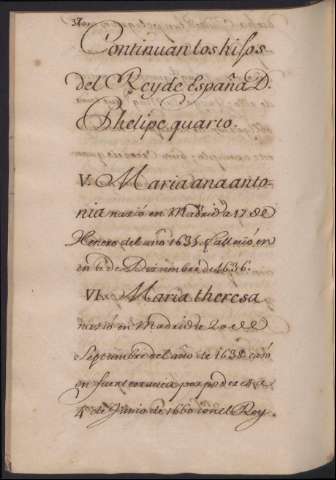 Continuan los hijos
del Rey de España D.
Phelipe quarto.
V. Maria ana anto-
nia nació en Madrid a 17 de
Henero del año 1635. falleció en
en 6 de Dizienbre de 1636.
VI. Maria theresa
nació en Madrid a 20 de
Septiembre del año de 1638 casó
en fuenterravia por poderes
4 de Junio de 1660 con el Rey.